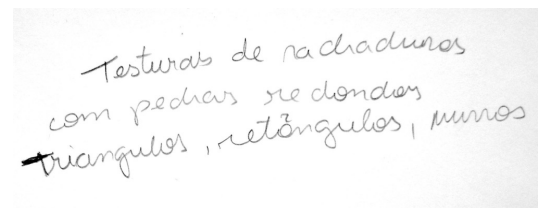 Testuras de rachaduras
com pedras redondas
triangulos, retângulos, muros